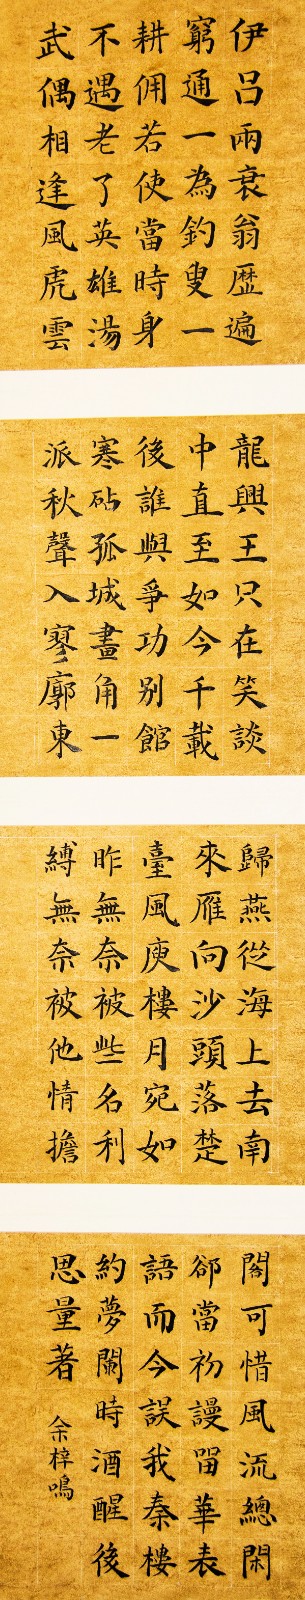 伊呂兩衰翁歷遍
窮通一為釣叟一
耕佣若使當時身
不遇老了英雄湯
武偶相逢風虎雲
龍興王只在笑談
中直至如今千載
後誰與爭功別館
寒砧孤城畫角一
派秋聲入寥廓東
歸燕從海上去南
來雁向沙頭落楚
臺風庾樓月宛如
昨無奈被些名利
縛無奈被他情擔
閣可惜風流總閑
卻當初謾留華表
語而今誤我秦樓
約夢闌時酒醒後
思量著
余梓鳴